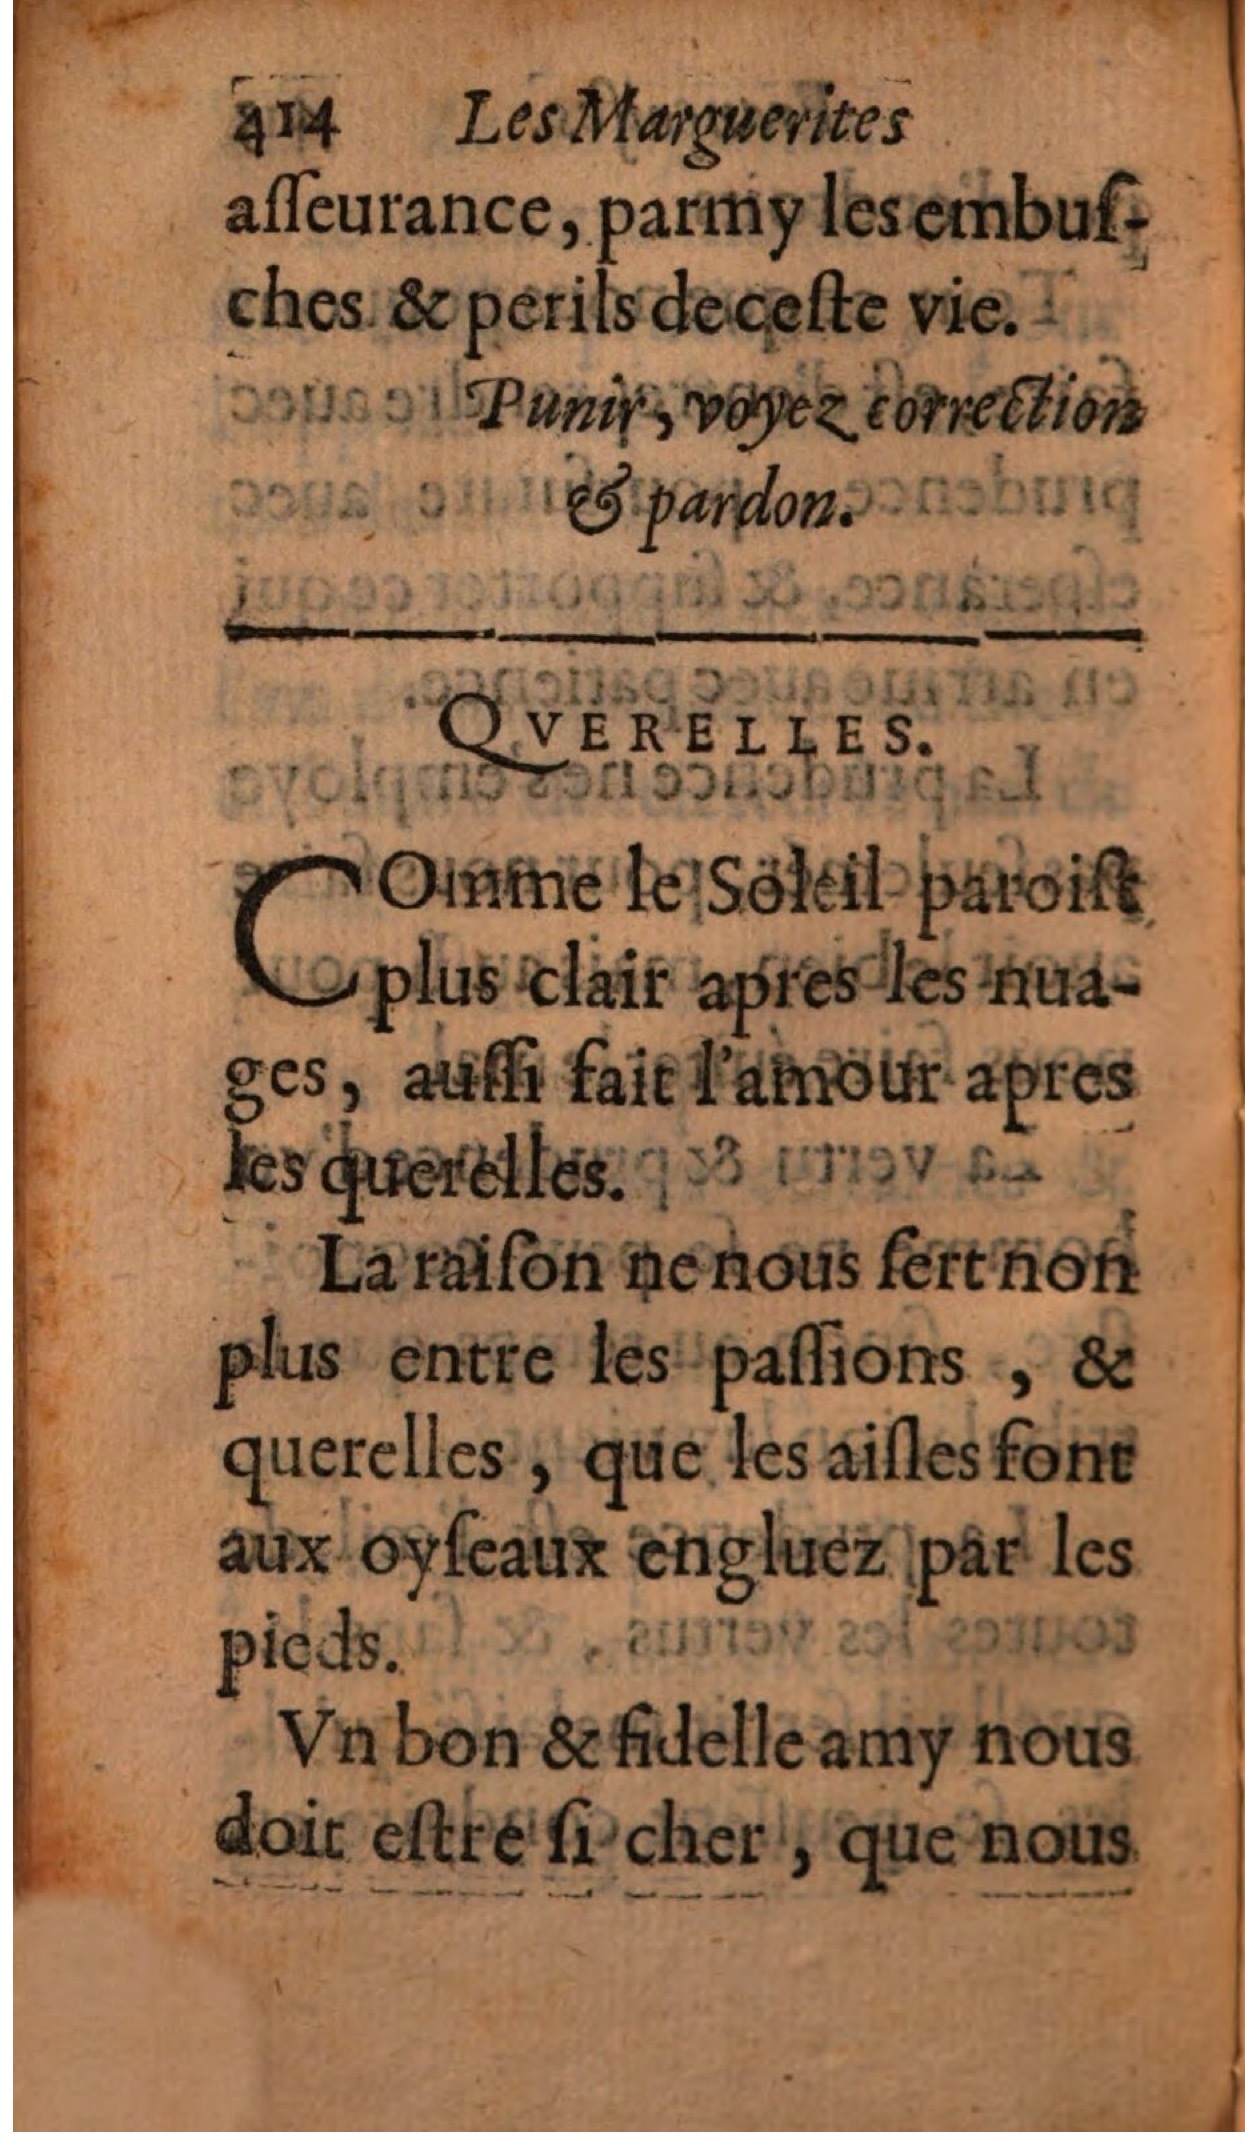 414 Les Marguerites
aſſeurance, parmy les embuſ-
ches & perils de ceſte vie.
Punir, voyez correction
& pardon.
QVERELLES.
COmme le Soleil paroiſt
plus clair apres les nua-
ges, auſſi fait l'amour apres
les querelles.
La raiſon ne nous ſert non
plus entre les paſſions , &
querelles , que les aiſles font
aux oyſeaux engluez par les
pieds.
Vn bon & fidelle amy nous
doit eſtre ſi cher , que nous